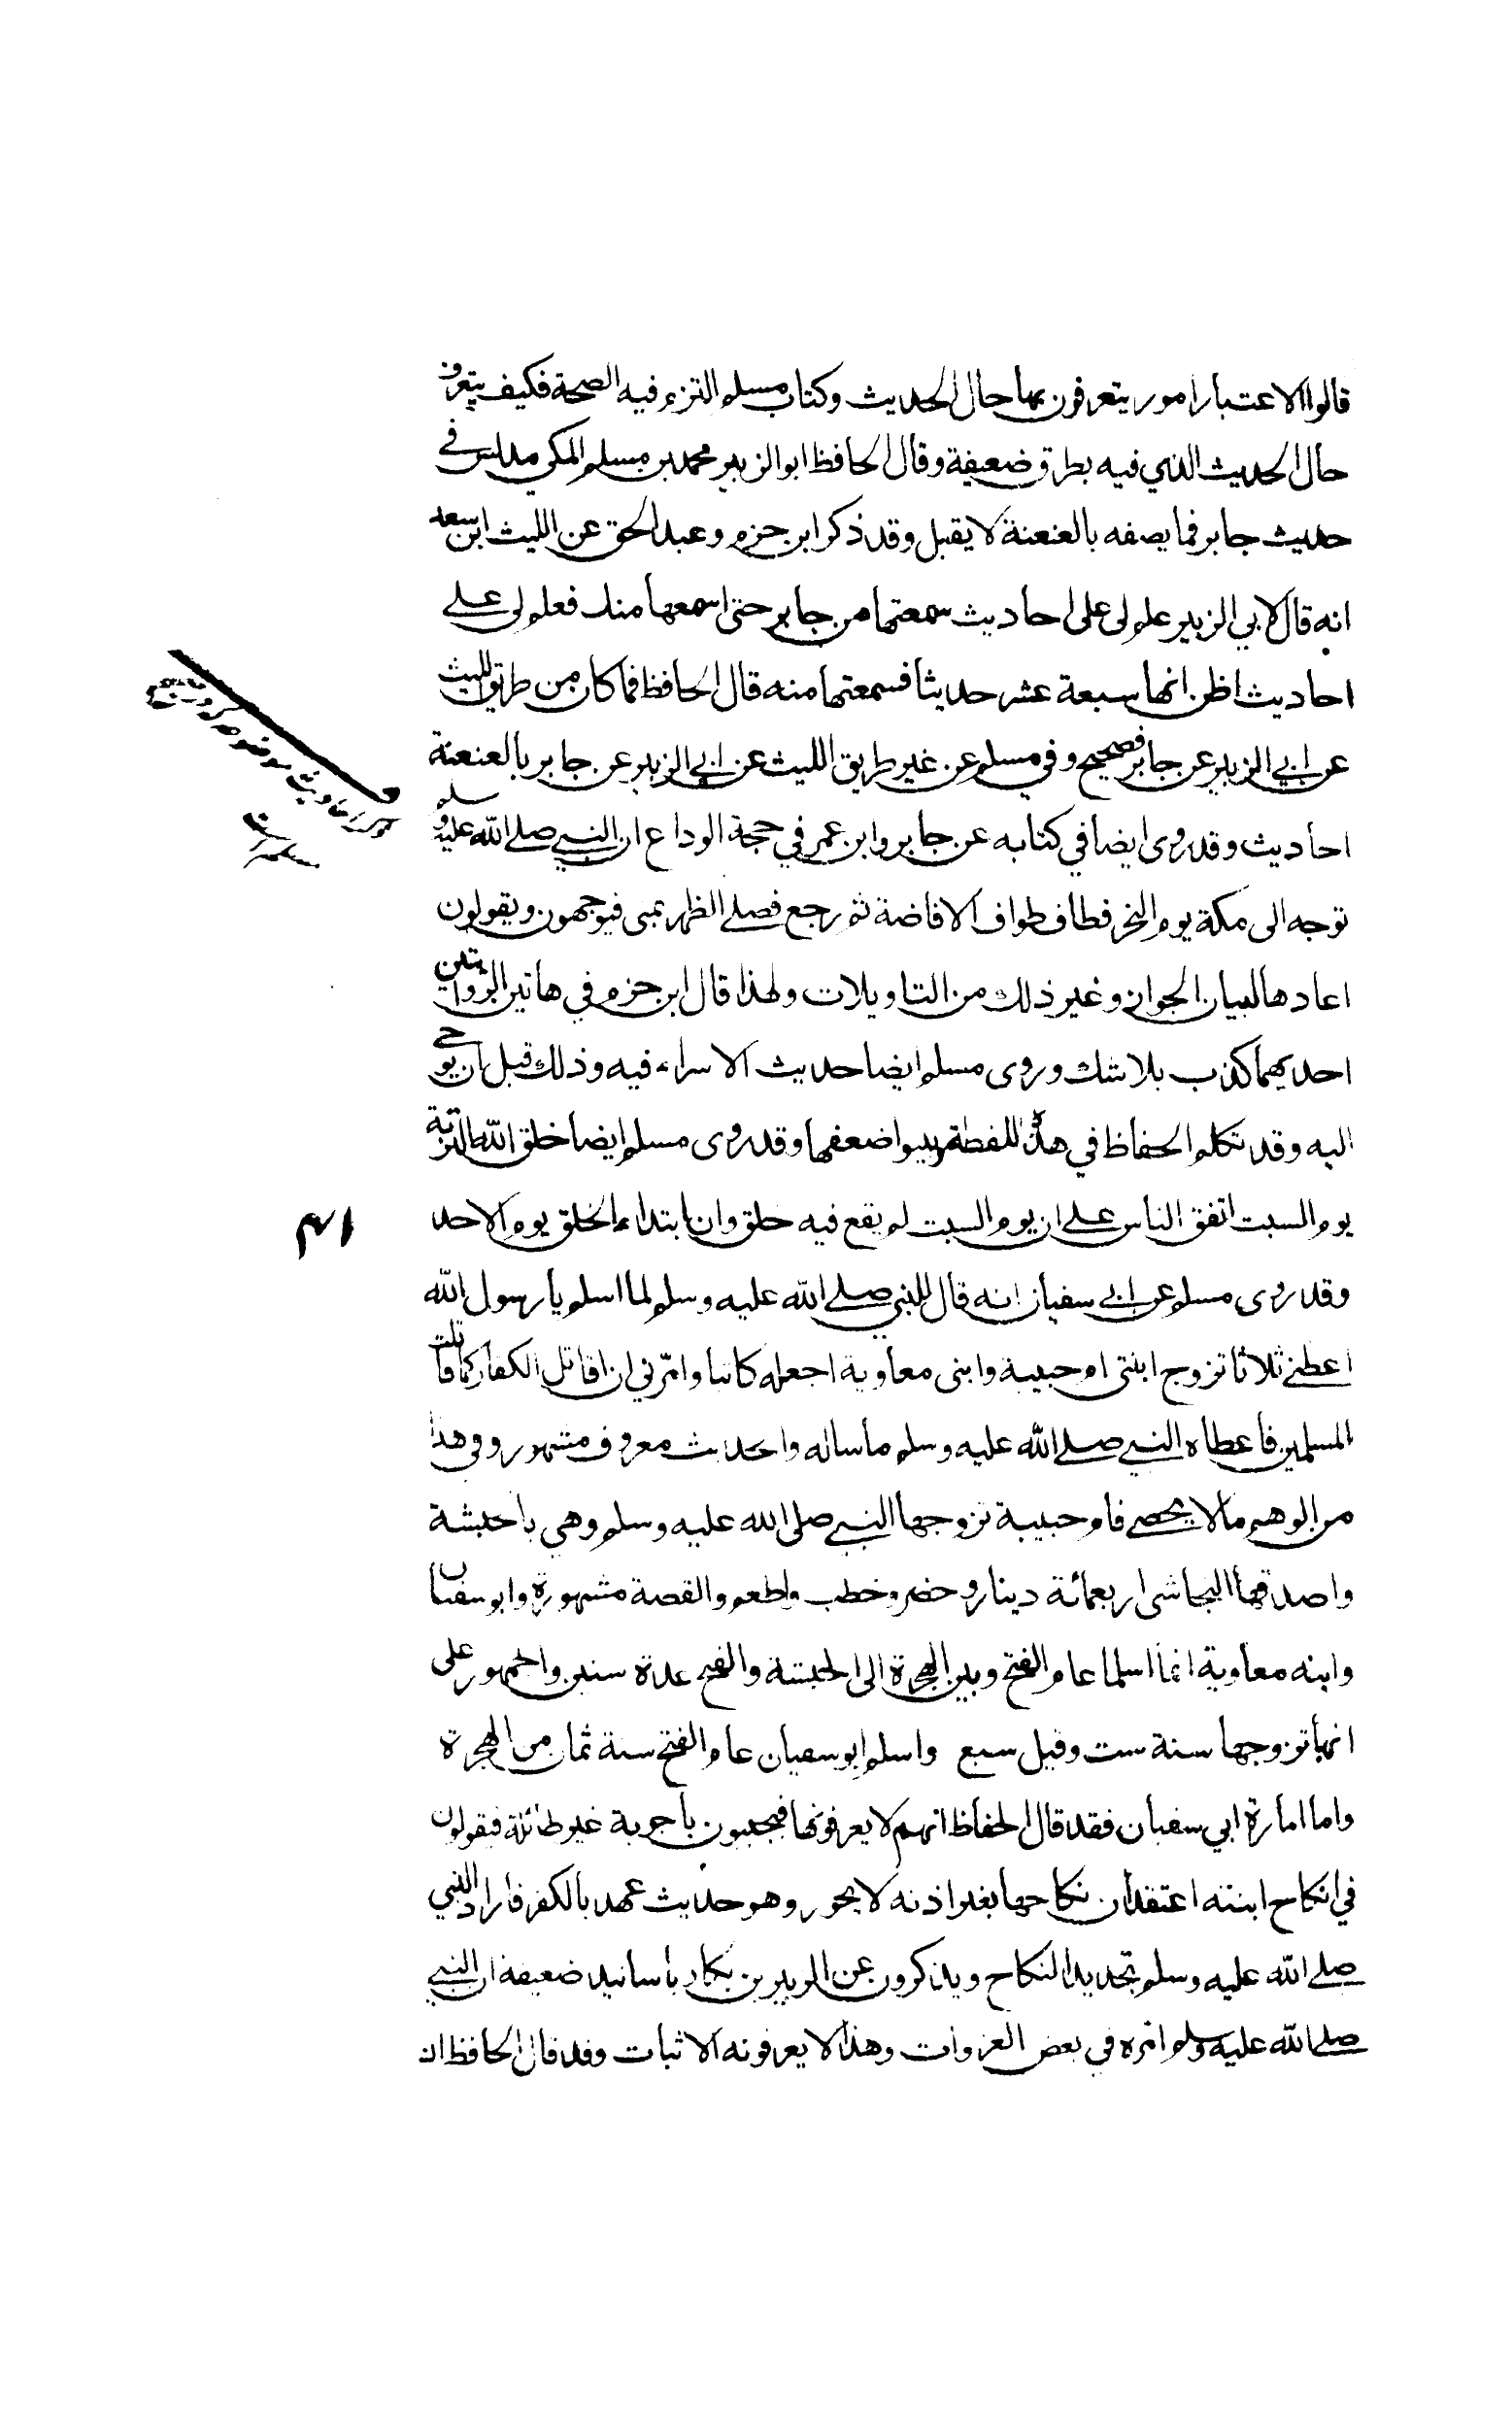 قالوا الاعتبار امور يتعرفون بها حال الحديث وكتاب مسلم التزم فيه الصحة فكيف يتعرف
حال الحديث الذي فيه بطرق ضعيفة وقال الحافظ ابو الزبير محمد بن مسلم المكي مدلس في
حديث جابر فما يصفه بالعنعنة لا يقبل وقد ذكر ابن حزم وعبد الحق عن الليث ابن سعد
انه قال لابي الزبير علم لي على احاديث سمعتها من جابر حتى اسمعها منك فعلم لي على
احاديث اظن انها سبعة عشر حديثا فسمعتها منه قال الحافظ فما كان من طريق الليث
عن ابي الزبير عن جابر فصحيح وفي مسلم عن غير طريق الليث عن ابي الزبير عن جابر بالعنعنة
احاديث وقد روى ايضا في كتابه عن جابر وابن عمر في حجة الوداع ان النبي صلى الله عليه وسلم
توجه الى مكة يوم النحر فطاف طواف الافاضة ثم رجع فصلى الظهر بمنى فيوجهون ويقولون
اعادها لبيان الجواز وغير ذلك من التاويلات ولهذا قال ابن حزم في هاتين الروايتين
احديهما كذب بلا شك وروى مسلم ايضا حديث الاسراء فيه وذلك قبل ان يوحى
اليه وقد تكلم الحفاظ في هذه اللفظة وبينوا ضعفها وقد روى مسلم ايضا خلق الله التربة
يوم السبت اتفق الناس على ان يوم السبت لم يقع فيه خلق وان ابتداء الخلق يوم الاحد
٤١
وقد روى مسلم عن ابي سفيان انه قال للنبي صلى الله عليه وسلم لما اسلم يا رسول الله
اعطني ثلاثا تزوج ابنتي ام حبيبة وابني معاوية اجعله كاتبا وامرني ان اقاتل الكفار كما قاتلت
المسلمين فاعطاه النبي صلى الله عليه وسلم ما ساله واحديث معروف مشهور وفي هذا
من الوهم ما لا يحصى فام حبيبة تزوجها النبي صلى الله عليه وسلم وهي باحبشة
واصدقها النجاشي اربعمائة دينار وحضر وخطب واطعم والقصة مشهورة وابو سفيان
وابنه معاوية انما اسلما عام الفتح وبين الهجرة الى الحبشة والفتح عدة سنين والجمهور على
انها تزوجها سنة ست وقيل سبع واسلم ابو سفيان عام الفتح سنة ثمان من الهجرة
واما امارة ابي سفيان فقد قال الحفاظ انهم لا يعرفونها فيجيبون باجوبة غير طائلة فيقولون
في انكاح ابنته اعتقد ان نكاحها بغير اذنه لا يجوز وهو حديث عهد بالكفر فاراد النبي
صلى الله عليه وسلم تجديد النكاح ويذكرون عن الزبير بن بكار باسانيد ضعيفة ان النبي
صلى الله عليه وسلم امره في بعض الغزوات وهذا لا يعرفونه الاثبات وقد قال الحافظ ان